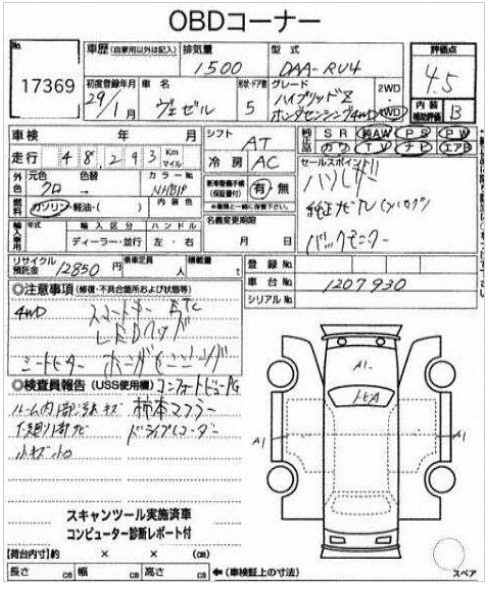 OBDコーナー
No. 17369
車歴 (自家用以外は記入) 排気量 1500 型式 DAA-RU4 評価点 4.5
初度登録年月 29/1月 車名 ヴェゼル 形状・ドア数 5 グレード ハイブリッドZ ホンダセンシング4WD 2WD 4WD 内装補助評価 B
車検 年 月 シフト AT SR AW PS PW
走行 48,293 Km マイル 冷房 AC カワ TV ナビ エアB
外色 元色 クロ → 色替 カラーNo NH818P セールスポイント
有・無 純正ナビTV
燃料 ガソリン・軽油・( ) 内装色 バックモニター
輸入車用 年式 輸入区分 ハンドル 名義変更期限
ディーラー・並行 左・右 月 日
リサイクル預託金 12850円 乗車定員 人 積載量 t 登録No.
◎注意事項 (修復・不具合箇所および状態等) 車台No. 1207930
4WD スマートキー ETC シリアルNo.
LEDヘッド
シートヒーター ホンダセンシング
◎検査員報告 (USS使用欄)
柿本マフラー
ドライブレコーダー
小キズ小凹
A1
A1
A1
スキャンツール実施済車
コンピューター診断レポート付
【荷台内寸】約 × × (cm)
長さ cm 幅 cm 高さ cm ←(車検証上の寸法) スペア